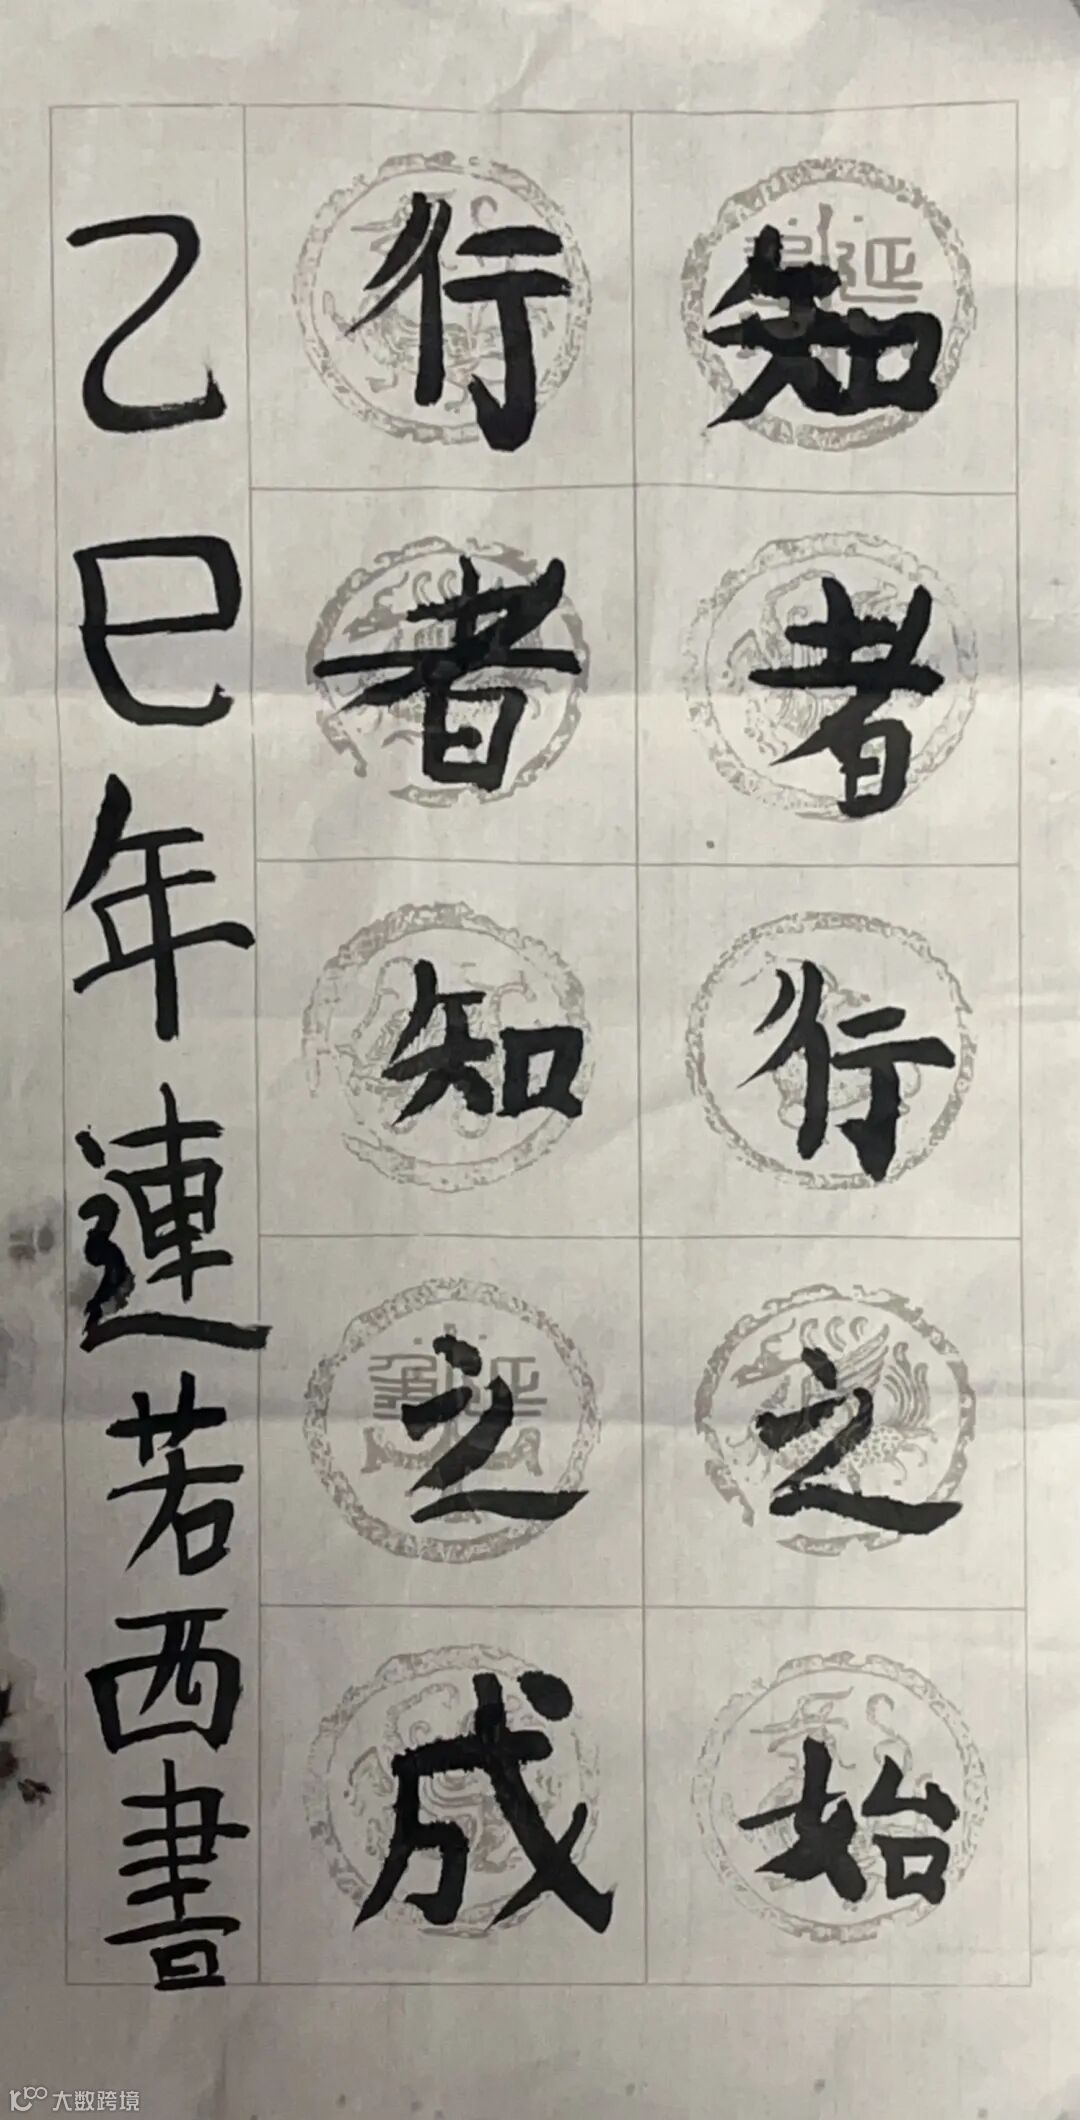 知者行之始
行者知之成
乙巳年連若西書
大数跨境